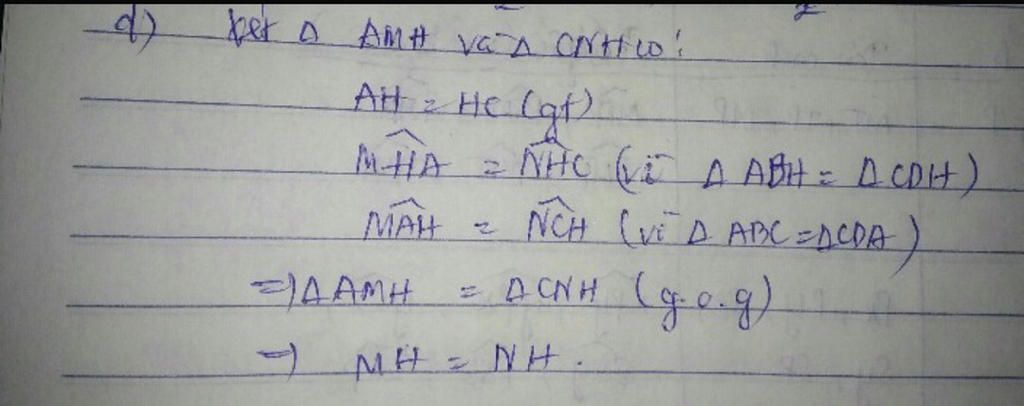 d) Xét Δ AMH và Δ CNH có:
AH = HC (gt)
MHA = NHC (vì Δ ABH = Δ CDH)
MAH = NCH (vì Δ ABC = ΔCDA)
=> Δ AMH = Δ CNH (g.c.g)
=> MH = NH.